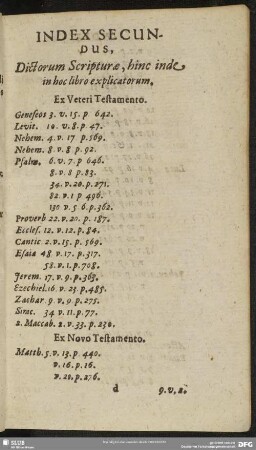 INDEX SECUN-
DUS,
Dictorum Scripturæ, hinc inde
in hoc libro explicatorum.
Ex Veteri Testamento.
Geneseos 3. v. 15. p 642.
Levit. 10. v. 8. p. 47.
Nehem. 4. v. 17 p. 569.
Nehem. 8. v. 8 p. 92.
Psalm. 6. v. 7. p 646.
8. v. 8 p. 83.
34. v. 20. p. 271.
82. v. 1 p 496.
130 v. 5. 6. p. 362.
Proverb 22. v. 20. p. 187.
Eccles. 12. v. 12. p. 84.
Cantic 2. v. 15. p. 569.
Esaiæ 48. v. 17. p. 317.
58. v. 1. p. 708.
Jerem. 17. v. 9. p. 363.
Ezechiel. 16. v. 23. p. 485.
Zachar. 9. v. 9. p. 275.
Sirac. 34. v. 11. p. 77.
2. Maccab. 2. v. 33. p. 230.
Ex Novo Testamento.
Matth. 5. v. 13. p. 440.
v. 16. p. 16.
v. 20. p. 276.
d 9. v. 2.
SLUB